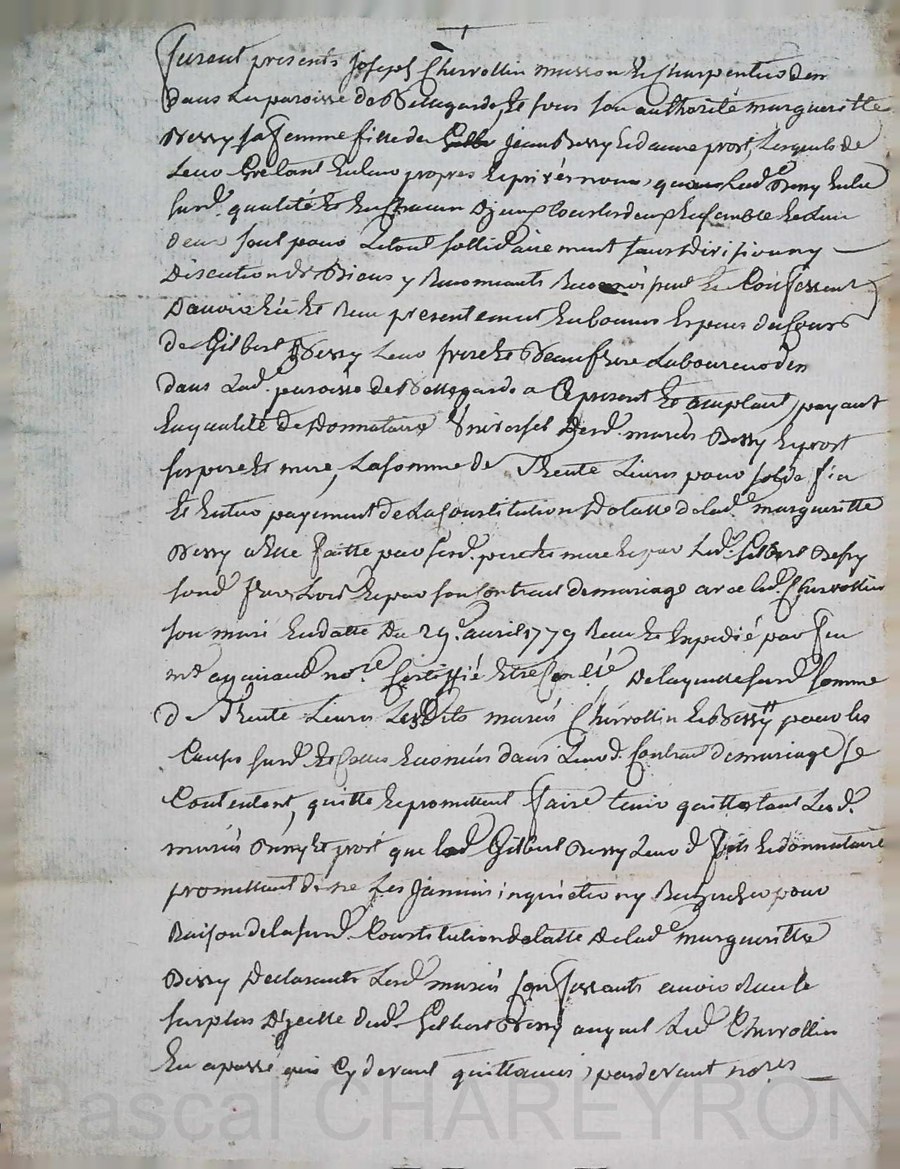 furent presents joseph Chervollin masson & Charpentier dem
dans la paroisse de Bellegarde, & sous son authorité margueritte
Bessy sa femme fille de jean Bessy & dame prost, lesquels de
leur Gré tant en leur propres & privés noms, que lad.e Bessy en la
surd. qualité & tous les deux Ensemble & l'un
deux seul pour le tout sollidairement sans division ny
Discution de Biens y Renoncants & Confessent
D'avoir Eû & Reçu presentement en bonnes Especes du Cours
de Gilbert Bessy leur frere & Beaufrere Laboureur dem
dans lad. paroisse de Bellegarde a Ce present & acceptant, payant
En qualité de Donnataire Universel desd. mariés Bessy & prost
ses pere & mere, La somme de Trente Livres pour solde fin
& Entier payement de La Constitution Dotalle de lad.e margueritte
Bessy a Elle faitte par sesd. pere & mere & par led. Gilbert Bessy
sond. frere lors & par son Contrat de mariage avec led. Chervollin
son mari En datte du 29.e avril 1779 Reçu & Expedié par feu
m.e no.re De laquelle surd. somme
de Trente Livres Lesdits mariés Chervollin & Bessy pour les
Causes surd. & Celles Enoncées dans leurd. Contrat de mariage se
Contentent, quitte & promettent faire tenir quitte tant Lesd.
mariés Bessy & prost que led. Gilbert Bessy leurd. fils & donnataire
promettant de ne Les jamais inquieter ny Rechercher pour
Raison de la surd. Constitution dotalle de lad.e margueritte
Bessy Declarants Lesd. mariés Confessants avoir Reçu le
surplus D'icelle dud. Gilbert Bessy auquel led. Chervollin
En a passé Cy devant quittances, pardevant no.res
Pascal CHAREYRON